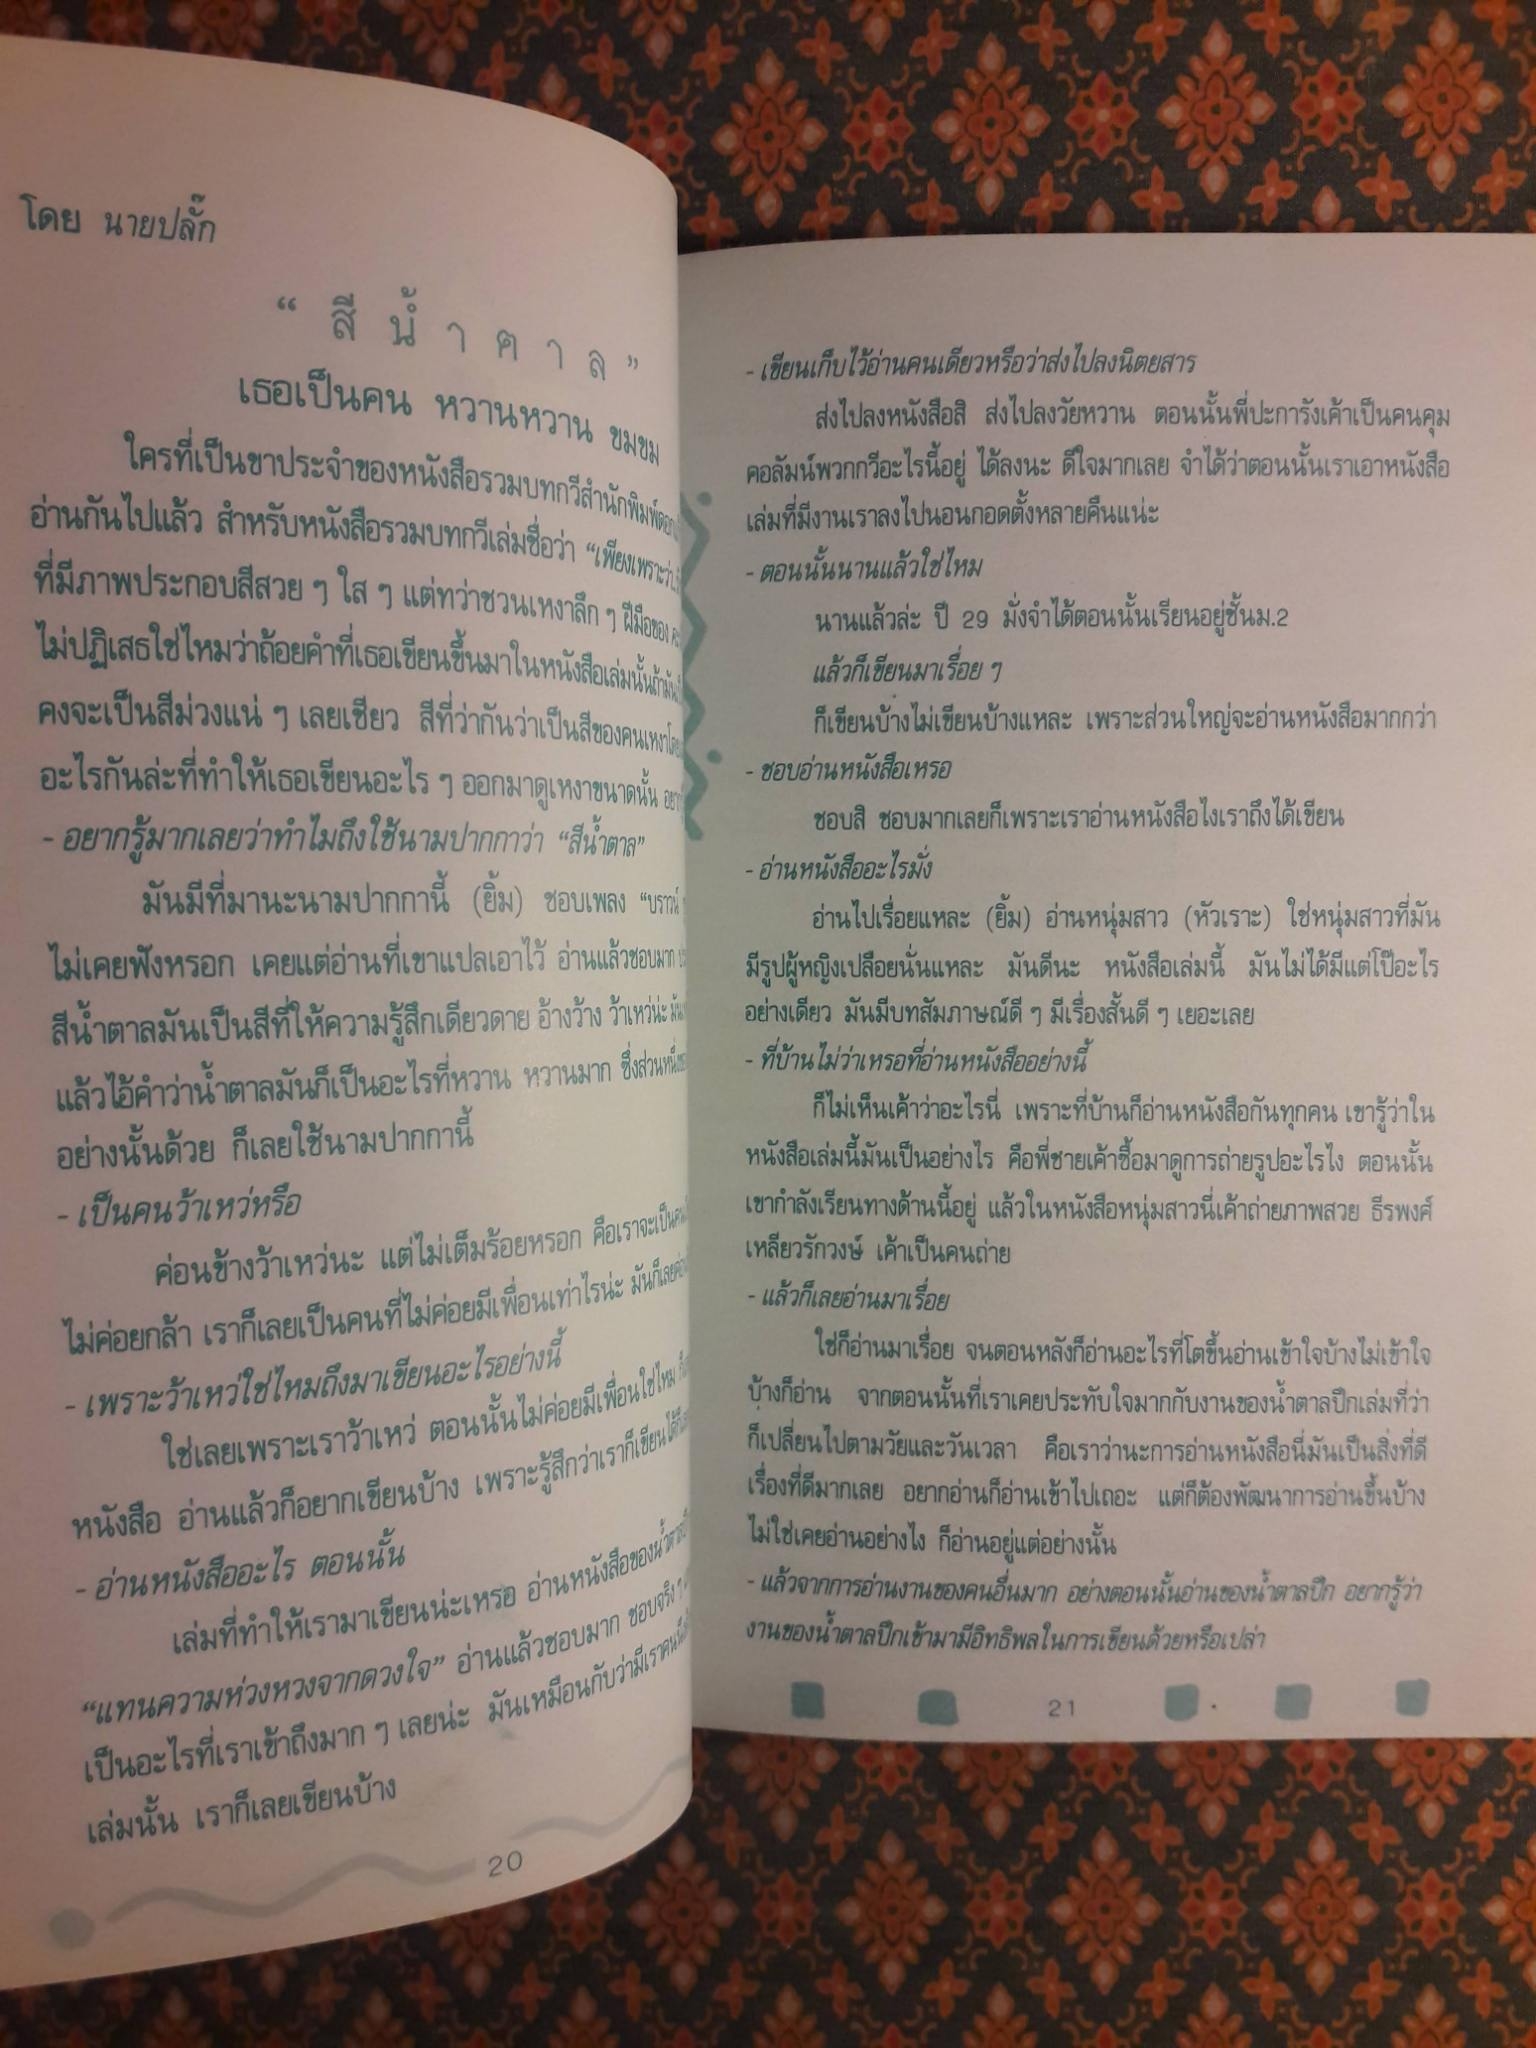 โดย นายปลั๊ก
“ สีน้ำตาล ”
เธอเป็นคน หวานหวาน ขมขม
ใครที่เป็นขาประจำของหนังสือรวมบทกวีสำนักพิมพ์ดอก
อ่านกันไปแล้ว สำหรับหนังสือรวมบทกวีเล่มชื่อว่า “เพียงเพราะว่า..
ที่มีภาพประกอบสีสวย ๆ ใส ๆ แต่ทว่าชวนเหงาลึก ๆ ฝีมือของ
ไม่ปฏิเสธใช่ไหมว่าถ้อยคำที่เธอเขียนขึ้นมาในหนังสือเล่มนั้นถ้ามัน
คงจะเป็นสีม่วงแน่ ๆ เลยเชียว สีที่ว่ากันว่าเป็นสีของคนเหงาโดย
อะไรกันล่ะที่ทำให้เธอเขียนอะไร ๆ ออกมาดูเหงาขนาดนั้น
- อยากรู้มากเลยว่าทำไมถึงใช้นามปากกาว่า “สีน้ำตาล”
มันมีที่มานะนามปากกานี้ (ยิ้ม) ชอบเพลง “บราวน์
ไม่เคยฟังหรอก เคยแต่อ่านที่เขาแปลเอาไว้ อ่านแล้วชอบมาก
สีน้ำตาลมันเป็นสีที่ให้ความรู้สึกเดียวดาย อ้างว้าง ว้าเหว่น่ะ
แล้วไอ้คำว่าน้ำตาลมันก็เป็นอะไรที่หวาน หวานมาก ซึ่งส่วนหนึ่ง
อย่างนั้นด้วย ก็เลยใช้นามปากกานี้
- เป็นคนว้าเหว่หรือ
ค่อนข้างว้าเหว่นะ แต่ไม่เต็มร้อยหรอก คือเราจะเป็นคน
ไม่ค่อยกล้า เราก็เลยเป็นคนที่ไม่ค่อยมีเพื่อนเท่าไรน่ะ มันก็เลย
- เพราะว้าเหว่ใช่ไหมถึงมาเขียนอะไรอย่างนี้
ใช่เลยเพราะเราว้าเหว่ ตอนนั้นไม่ค่อยมีเพื่อนใช่ไหม
หนังสือ อ่านแล้วก็อยากเขียนบ้าง เพราะรู้สึกว่าเราก็เขียนได้
- อ่านหนังสืออะไร ตอนนั้น
เล่มที่ทำให้เรามาเขียนน่ะเหรอ อ่านหนังสือของน้ำตาล
“แทนความห่วงหวงจากดวงใจ” อ่านแล้วชอบมาก ชอบจริง ๆ
เป็นอะไรที่เราเข้าถึงมาก ๆ เลยน่ะ มันเหมือนกับว่ามีเราคนนึง
เล่มนั้น เราก็เลยเขียนบ้าง
20
- เขียนเก็บไว้อ่านคนเดียวหรือว่าส่งไปลงนิตยสาร
ส่งไปลงหนังสือสิ ส่งไปลงวัยหวาน ตอนนั้นพี่ปะการังเค้าเป็นคนคุม
คอลัมน์พวกกวีอะไรนี้อยู่ ได้ลงนะ ดีใจมากเลย จำได้ว่าตอนนั้นเราเอาหนังสือ
เล่มที่มีงานเราลงไปนอนกอดตั้งหลายคืนแน่ะ
- ตอนนั้นนานแล้วใช่ไหม
นานแล้วล่ะ ปี 29 มั่งจำได้ตอนนั้นเรียนอยู่ชั้นม.2
แล้วก็เขียนมาเรื่อย ๆ
ก็เขียนบ้างไม่เขียนบ้างแหละ เพราะส่วนใหญ่จะอ่านหนังสือมากกว่า
- ชอบอ่านหนังสือเหรอ
ชอบสิ ชอบมากเลยก็เพราะเราอ่านหนังสือไงเราถึงได้เขียน
- อ่านหนังสืออะไรมั่ง
อ่านไปเรื่อยแหละ (ยิ้ม) อ่านหนุ่มสาว (หัวเราะ) ใช่หนุ่มสาวที่มัน
มีรูปผู้หญิงเปลือยนั่นแหละ มันดีนะ หนังสือเล่มนี้ มันไม่ได้มีแต่โป๊อะไร
อย่างเดียว มันมีบทสัมภาษณ์ดี ๆ มีเรื่องสั้นดี ๆ เยอะเลย
- ที่บ้านไม่ว่าเหรอที่อ่านหนังสืออย่างนี้
ก็ไม่เห็นเค้าว่าอะไรนี่ เพราะที่บ้านก็อ่านหนังสือกันทุกคน เขารู้ว่าใน
หนังสือเล่มนี้มันเป็นอย่างไร คือพี่ชายเค้าซื้อมาดูการถ่ายรูปอะไรไง ตอนนั้น
เขากำลังเรียนทางด้านนี้อยู่ แล้วในหนังสือหนุ่มสาวนี่เค้าถ่ายภาพสวย ธีรพงศ์
เหลียวรักวงษ์ เค้าเป็นคนถ่าย
- แล้วก็เลยอ่านมาเรื่อย
ใช่ก็อ่านมาเรื่อย จนตอนหลังก็อ่านอะไรที่โตขึ้นอ่านเข้าใจบ้างไม่เข้าใจ
บ้างก็อ่าน จากตอนนั้นที่เราเคยประทับใจมากกับงานของน้ำตาลปึกเล่มที่ว่า
ก็เปลี่ยนไปตามวัยและวันเวลา คือเราว่านะการอ่านหนังสือนี่มันเป็นสิ่งที่ดี
เรื่องที่ดีมากเลย อยากอ่านก็อ่านเข้าไปเถอะ แต่ก็ต้องพัฒนาการอ่านขึ้นบ้าง
ไม่ใช่เคยอ่านอย่างไง ก็อ่านอยู่แต่อย่างนั้น
- แล้วจากการอ่านงานของคนอื่นมาก อย่างตอนนั้นอ่านของน้ำตาลปึก อยากรู้ว่า
งานของน้ำตาลปึกเข้ามามีอิทธิพลในการเขียนด้วยหรือเปล่า
21